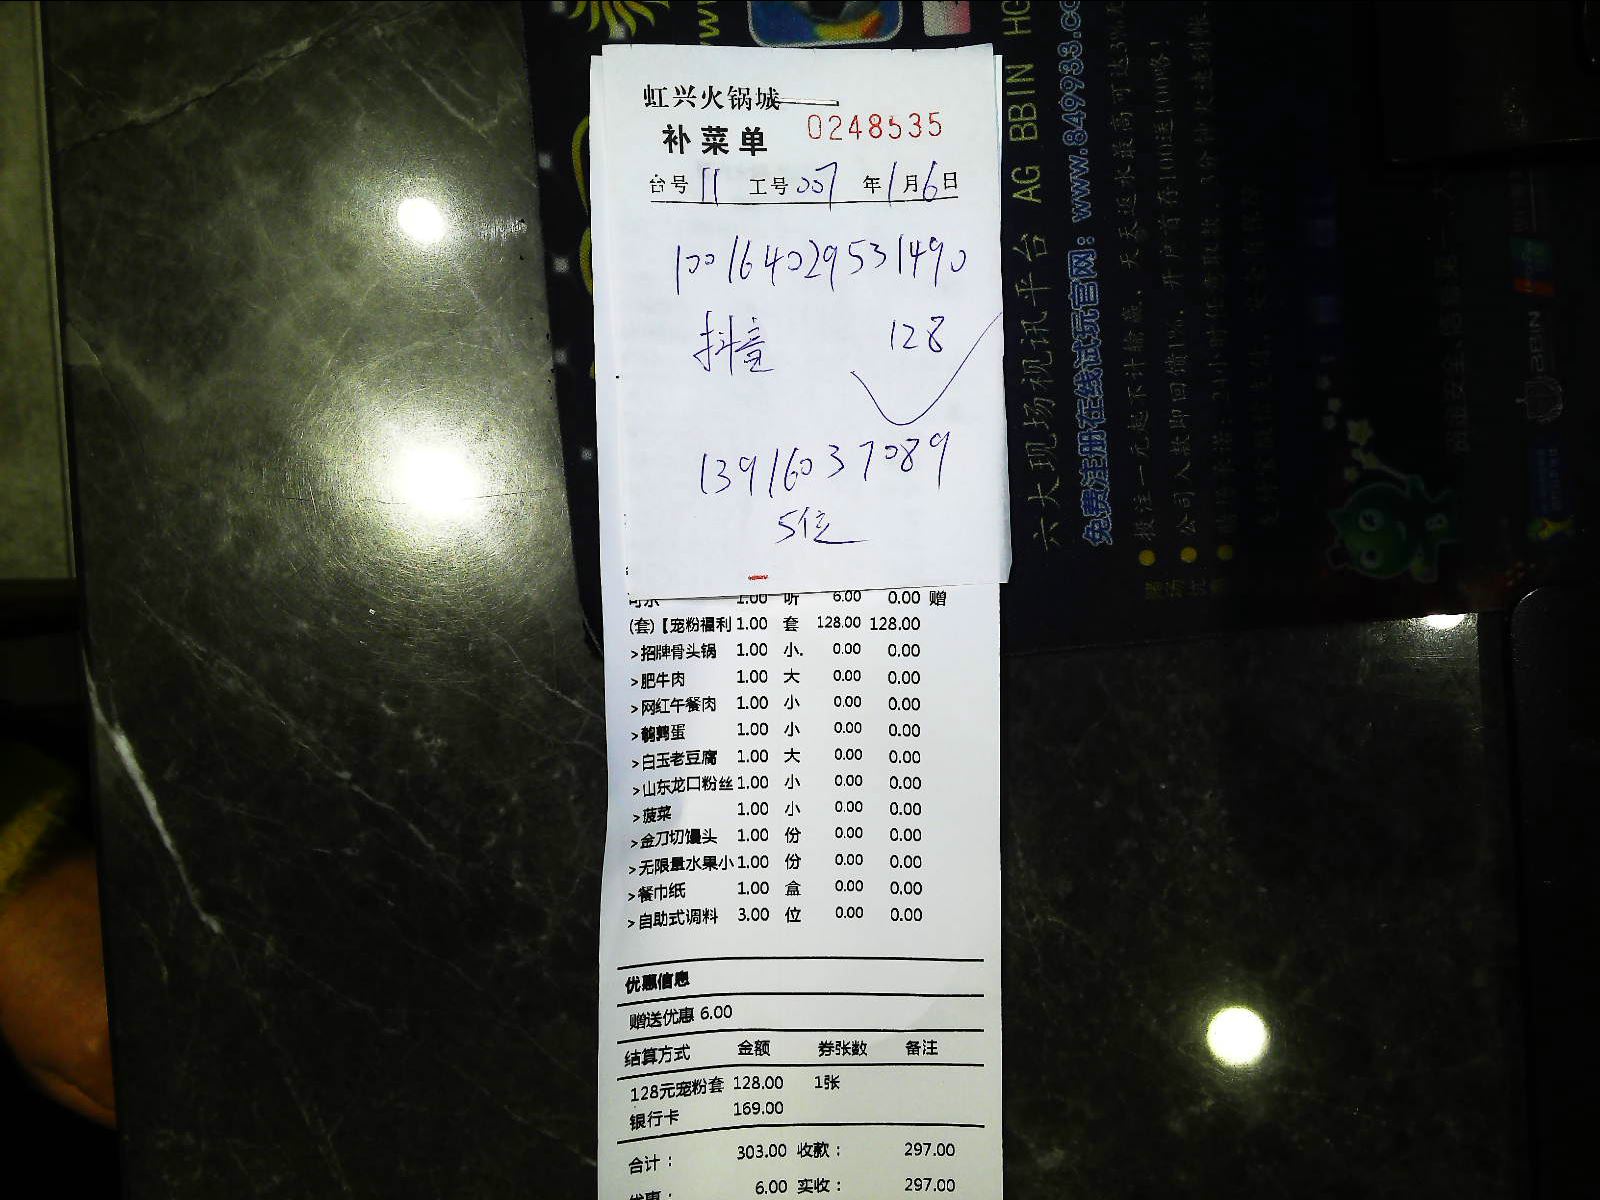 虹兴火锅城
补菜单 0248535
台号 11 工号 007 年 1 月 6 日
100164029531490
抖音 128
13916037089
5位
可乐 1.00 听 6.00 0.00 赠
(套)【宠粉福利 1.00 套 128.00 128.00
>招牌骨头锅 1.00 小. 0.00 0.00
>肥牛肉 1.00 大 0.00 0.00
>网红午餐肉 1.00 小 0.00 0.00
>鹌鹑蛋 1.00 小 0.00 0.00
>白玉老豆腐 1.00 大 0.00 0.00
>山东龙口粉丝 1.00 小 0.00 0.00
>菠菜 1.00 小 0.00 0.00
>金刀切馒头 1.00 份 0.00 0.00
>无限量水果小 1.00 份 0.00 0.00
>餐巾纸 1.00 盒 0.00 0.00
>自助式调料 3.00 位 0.00 0.00
优惠信息
赠送优惠 6.00
结算方式 金额 券张数 备注
128元宠粉套 128.00 1张
银行卡 169.00
合计： 303.00 收款： 297.00
优惠： 6.00 实收： 297.00
六大现场视讯平台 AG BBIN HG
免费注册在线试玩官网：www.849933.c